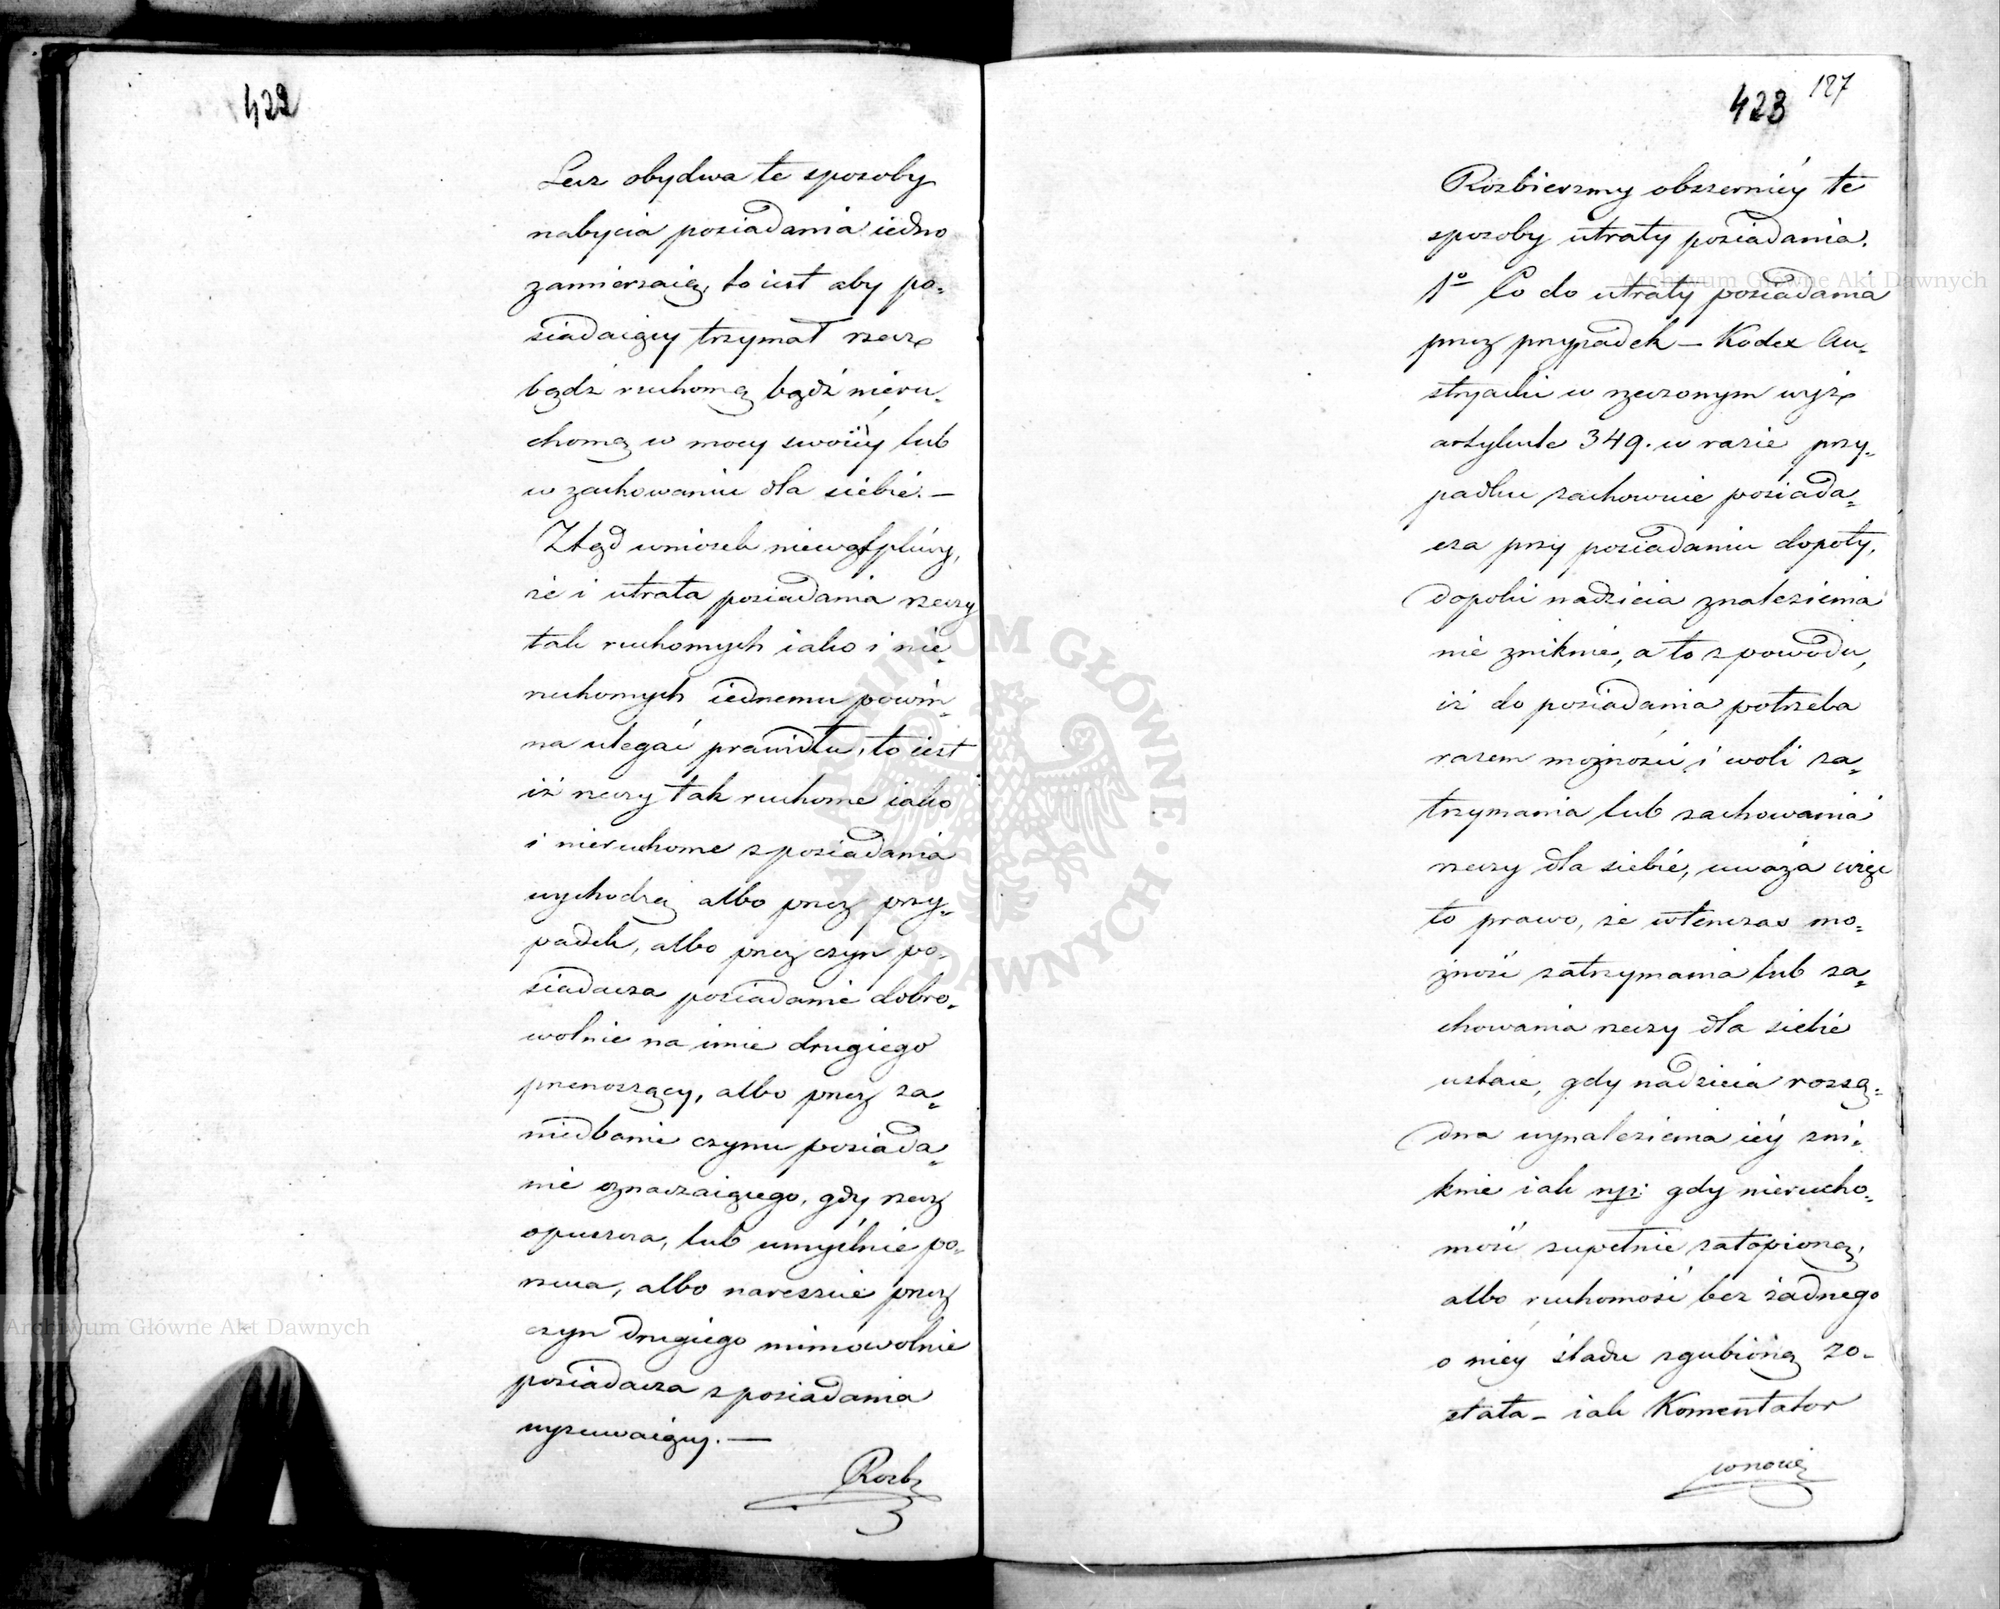 422
Lecz obydwa te sposoby
nabycia posiadania iedno
zamierzaią, to iest aby po„
siadaiący trzymał rzecz
bądź ruchomą bądź nieru„
chomą w mocy swoiéy lub
w zachowaniu dla siebie. —
Ztąd wniosek niewątpliwy,
że i utrata posiadania rzeczy
tak ruchomych iako i nie„
ruchomych iednemu powin„
na ulegać prawidłu, to iest
iż rzeczy tak ruchome iako
i nieruchome z posiadania
wychodzą albo przez przy„
padek, albo przez czyn po„
siadacza posiadanie dobro„
wolnie na imie drugiego
przenoszący, albo przez za„
niedbanie czynu posiada„
nie oznaczaiącego, gdy rzecz
opuszcza, lub umyślnie po„
rzuca, albo nareszcie przez
czyn drugiego mimowolnie
posiadacza z posiadania
wyzuwaiący. —
Rozb
423 187
Rozbierzmy obszerniéy te
sposoby utraty posiadania.
1º Co do utraty posiadania
przez przypadek — Kodex Au„
stryacki w rzeczonym wyżéy
artykule 349. w razie przy„
padku zachowuie posiada„
cza przy posiadaniu dopóty,
dopóki nadzieia znalezienia
nie zniknie, a to z powodu,
iż do posiadania potrzeba
razem możności i woli za„
trzymania lub zachowania
rzeczy dla siebie, uważa więc
to prawo, że wtenczas mo„
żność zatrzymania lub za„
chowania rzeczy dla siebie
ustaie, gdy nadzieia rozsą„
dna wynalezienia iéy zni„
knie iak np: gdy nierucho„
mość zupełnie zatopioną,
albo ruchomość bez żadnego
o niéy śladu zgubioną zo„
stała — iak Komentator
wnosi
Archiwum Główne Akt Dawnych
Archiwum Główne Akt Dawnych
ARCHIWUM GŁÓWNE AKT DAWNYCH